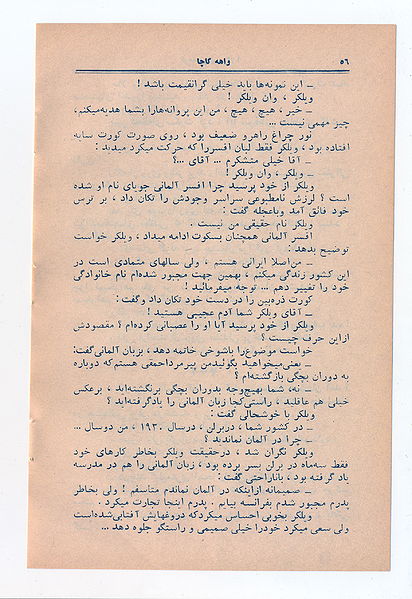 ٥٦
واهه کاچا
ــ این نمونه‌ها باید خیلی گرانقیمت باشد !
ویلکر ، وان ویلکر !
ــ خیر ، هیچ ، هیچ ، من این پروانه‌هارا بشما هدیه‌میکنم،
چیز مهمی نیست ...
نور چراغ راهرو ضعیف بود ، روی صورت کورت سایه
افتاده بود ، ویلکر فقط لبان افسررا که حرکت میکرد میدید :
ــ آقا خیلی متشکرم ... آقای ...؟
ــ ویلکر ، وان ویلکر !
ویلکر از خود پرسید چرا افسر آلمانی جویای نام او شده
است ؟ لرزش نامطبوعی سراسر وجودش را تکان داد ، بر ترس
خود فائق آمد وباعجله گفت :
ویلکر نام حقیقی من نیست .
افسر آلمانی همچنان بسکوت ادامه میداد ، ویلکر خواست
توضیح بدهد :
ــ من‌اصلا ایرانی هستم ، ولی سالهای متمادی است در
این کشور زندگی میکنم ، بهمین جهت مجبور شده‌ام نام خانوادگی
خود را تغییر دهم ... توجه میفرمائید !
کورت ذره‌بین را در دست خود تکان داد وگفت :
ــ آقای ویلکر شما آدم عجیبی هستید !
ویلکر از خود پرسید آیا او را عصبانی کرده‌ام ؟ مقصودش
ازاین حرف چیست ؟
خواست موضوع‌را باشوخی خاتمه دهد ، بزبان آلمانی‌گفت:
ــ یعنی‌میخواهید بگوئیدمن پیرمرداحمقی هستم‌که دوباره
به دوران بچگی بازگشته‌ام ؟
ــ نه، شما بهیچ‌وجه بدوران بچگی برنگشته‌اید ، برعکس
خیلی هم عاقلید ، راستی‌کجا زبان آلمانی را یادگرفته‌اید ؟
ویلکر با خوشحالی گفت :
ــ در کشور شما ، دربرلن ، درسال ۱۹۳۰ ، من دوسال ...
ــ چرا در آلمان نماندید ؟
ویلکر نگران شد ، درحقیقت ویلکر بخاطر کارهای خود
فقط سه‌ماه در برلن بسر برده بود ، زبان آلمانی را هم در مدرسه
یاد گرفته بود ، باناراحتی گفت :
ــ صمیمانه ازاینکه در آلمان نماندم متاسفم ! ولی بخاطر
پدرم مجبور شدم بفرانسه بیایم . پدرم اینجا تجارت میکرد .
ویلکر بخوبی احساس میکردکه دروغهایش آفتابی‌شده‌است
ولی سعی میکرد خودرا خیلی صمیمی و راستگو جلوه دهد ...